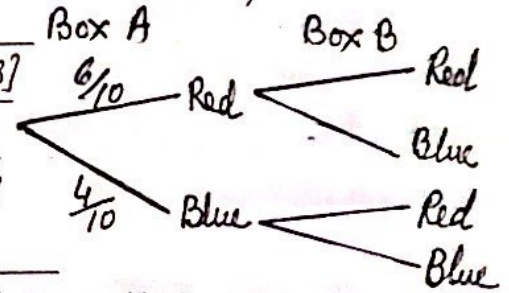 Box A
Box B
6/10
Red
Red
Blue
4/10
Blue
Red
Blue